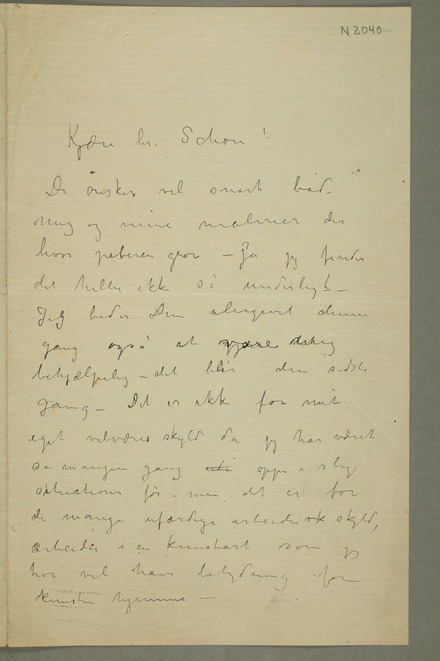 N 2040
Kjære hr. Schou!
De ønsker vel snart både
mig og mine malerier der
hvor peberen gror – Ja jeg finder
det heller ikke så underligt –
Jeg beder Dem alligevel denne
gang også at være mig
behjælpelig – det blir den sidste
gang – Det er ikke for mit
eget velværes skyld da jeg har været
så mangen gang oppe i slig
situationer før – men det er for
de mange ufærdige arbeiders skyld,
arbeider i en kunstart som jeg
tror vil have betydning for
kunsten hjemme –